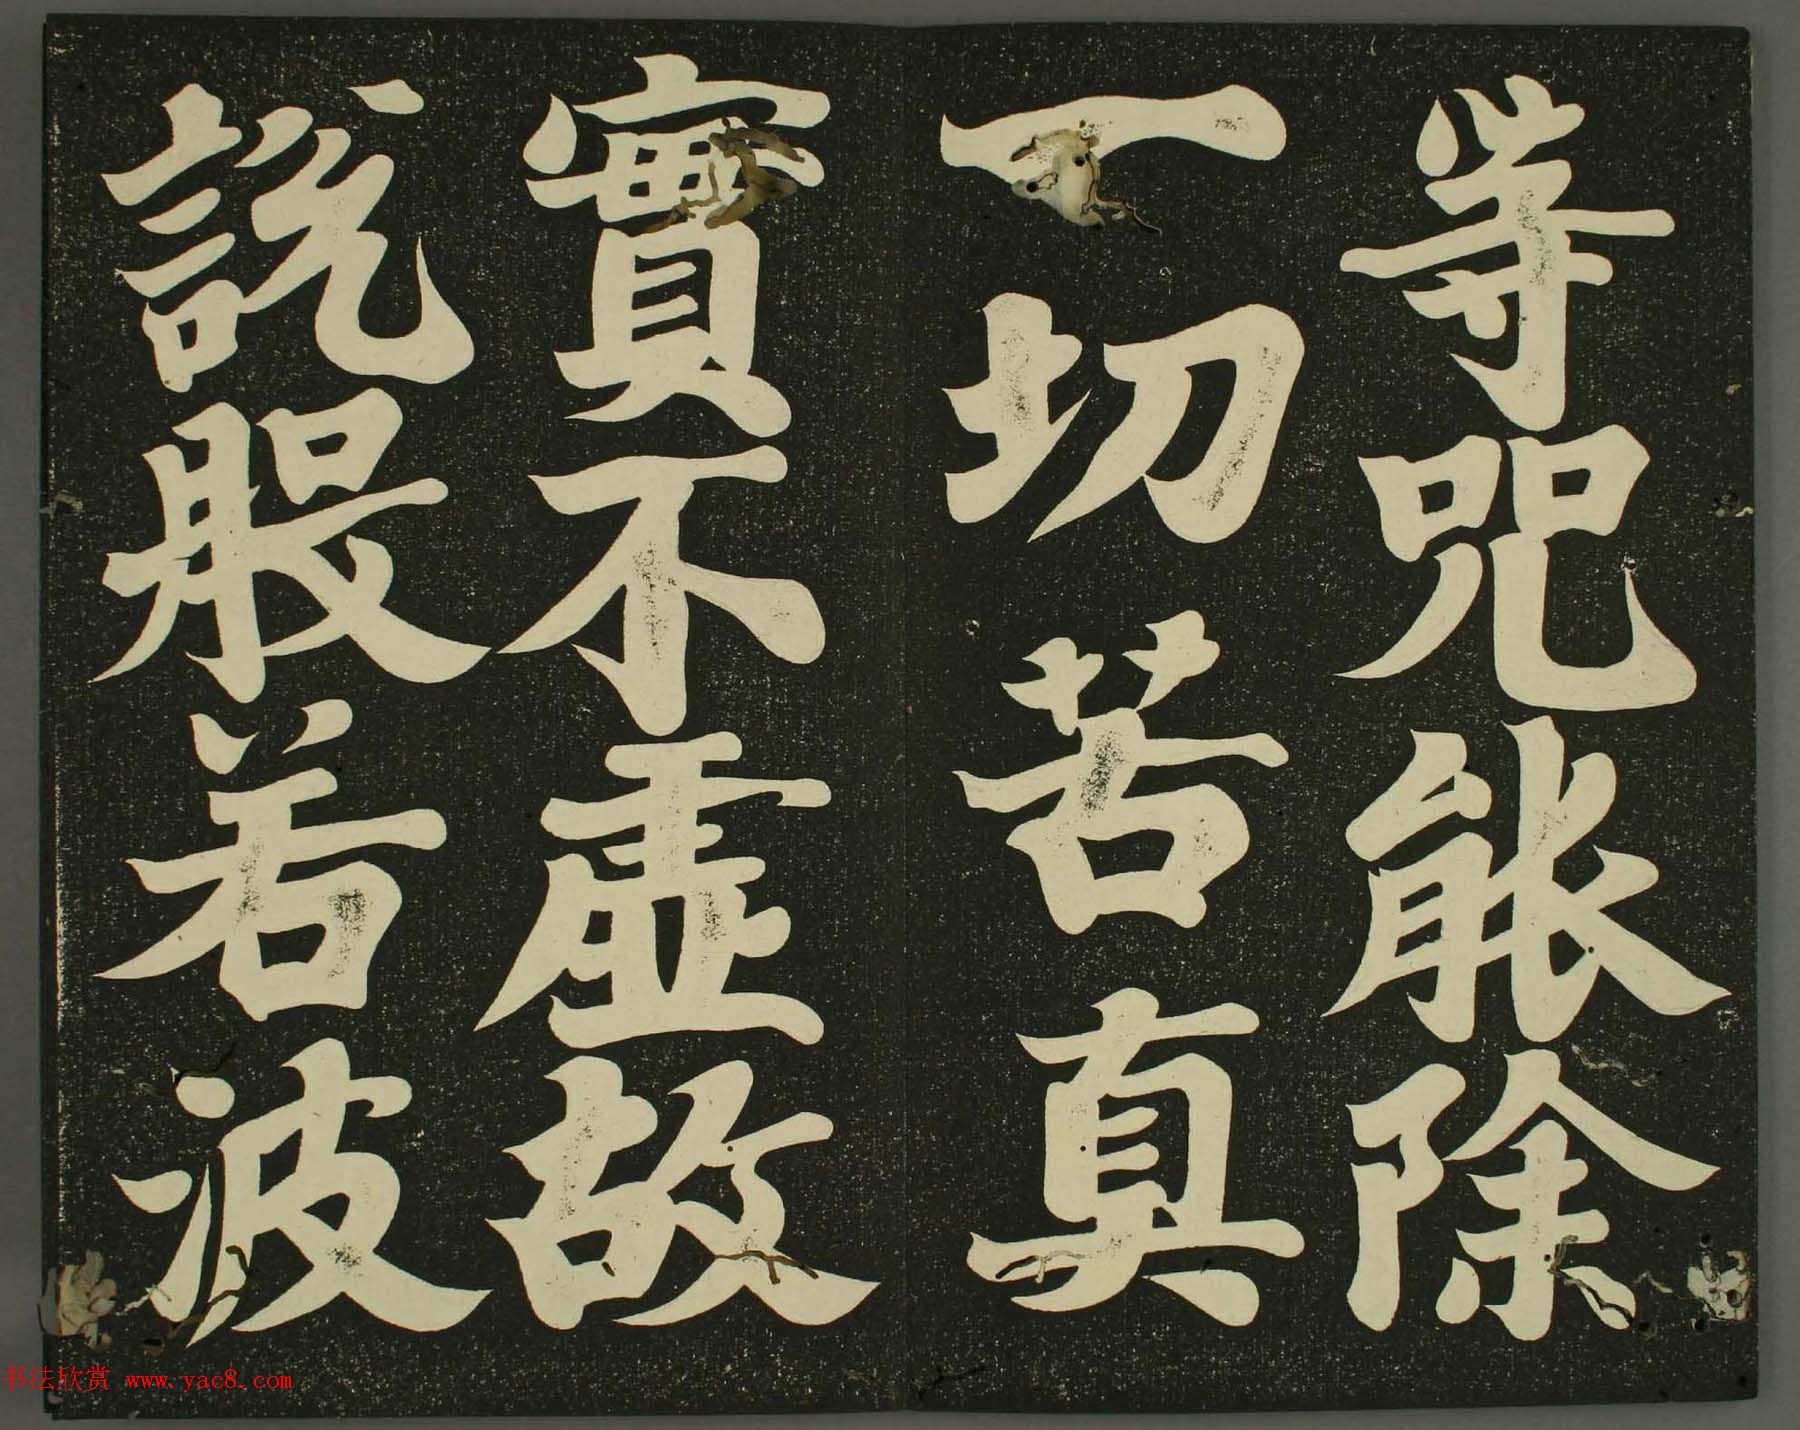 等咒能除
一切苦真
實不虛故
說般若波
书法欣赏 www.yac8.com